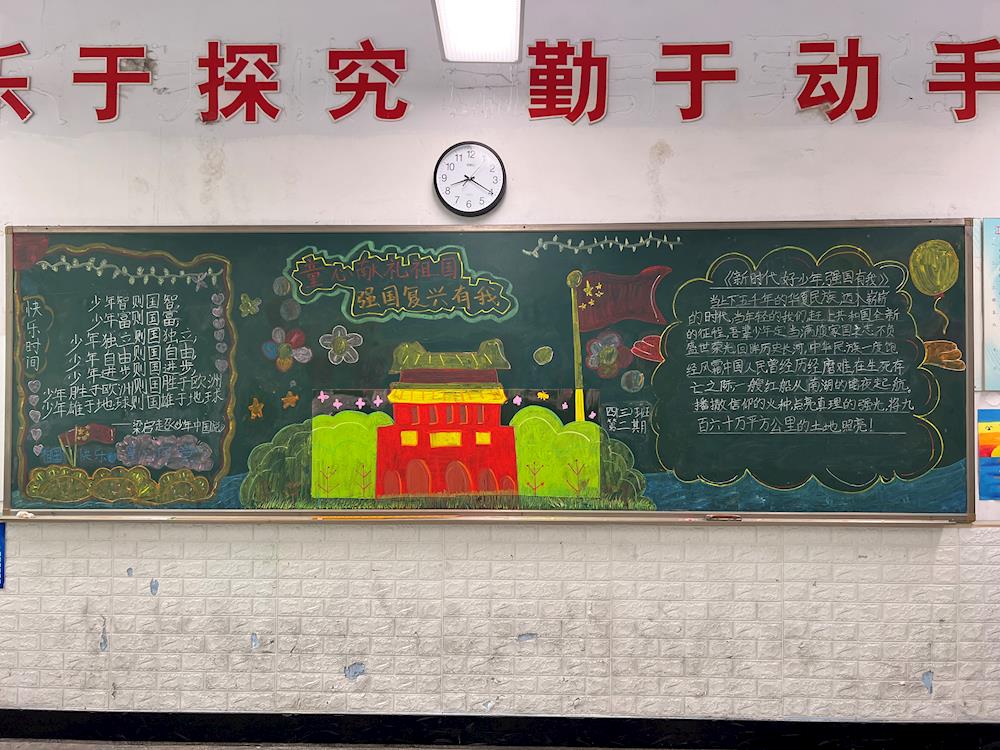 乐于探究 勤于动手
12
11
1
10
2
9
3
8
4
7
5
6
童心献礼祖国
强国复兴有我
快乐时间
少年智则国智
少年富则国富
少年独立则国独立
少年自由则国自由
少年进步则国进步
少年胜于欧洲则国胜于欧洲
少年雄于地球则国雄于地球
——梁启超《少年中国说》
四三班
第二期
《新时代 好少年 强国有我》
当上下五千年的华夏民族,迈入新時
的时代,当年轻的我们赶上共和国全新
的征程,吾辈少年定当满质家国之志,不负
盛世荣光回眸历史长河,中华民族一度饱
经风霜中国人民曾经历经磨难在生死存
亡之际一艘红船从南湖的暗夜起航,
播撒信仰的火种点亮真理的强光,将九
百六十万平方公里的土地照亮!